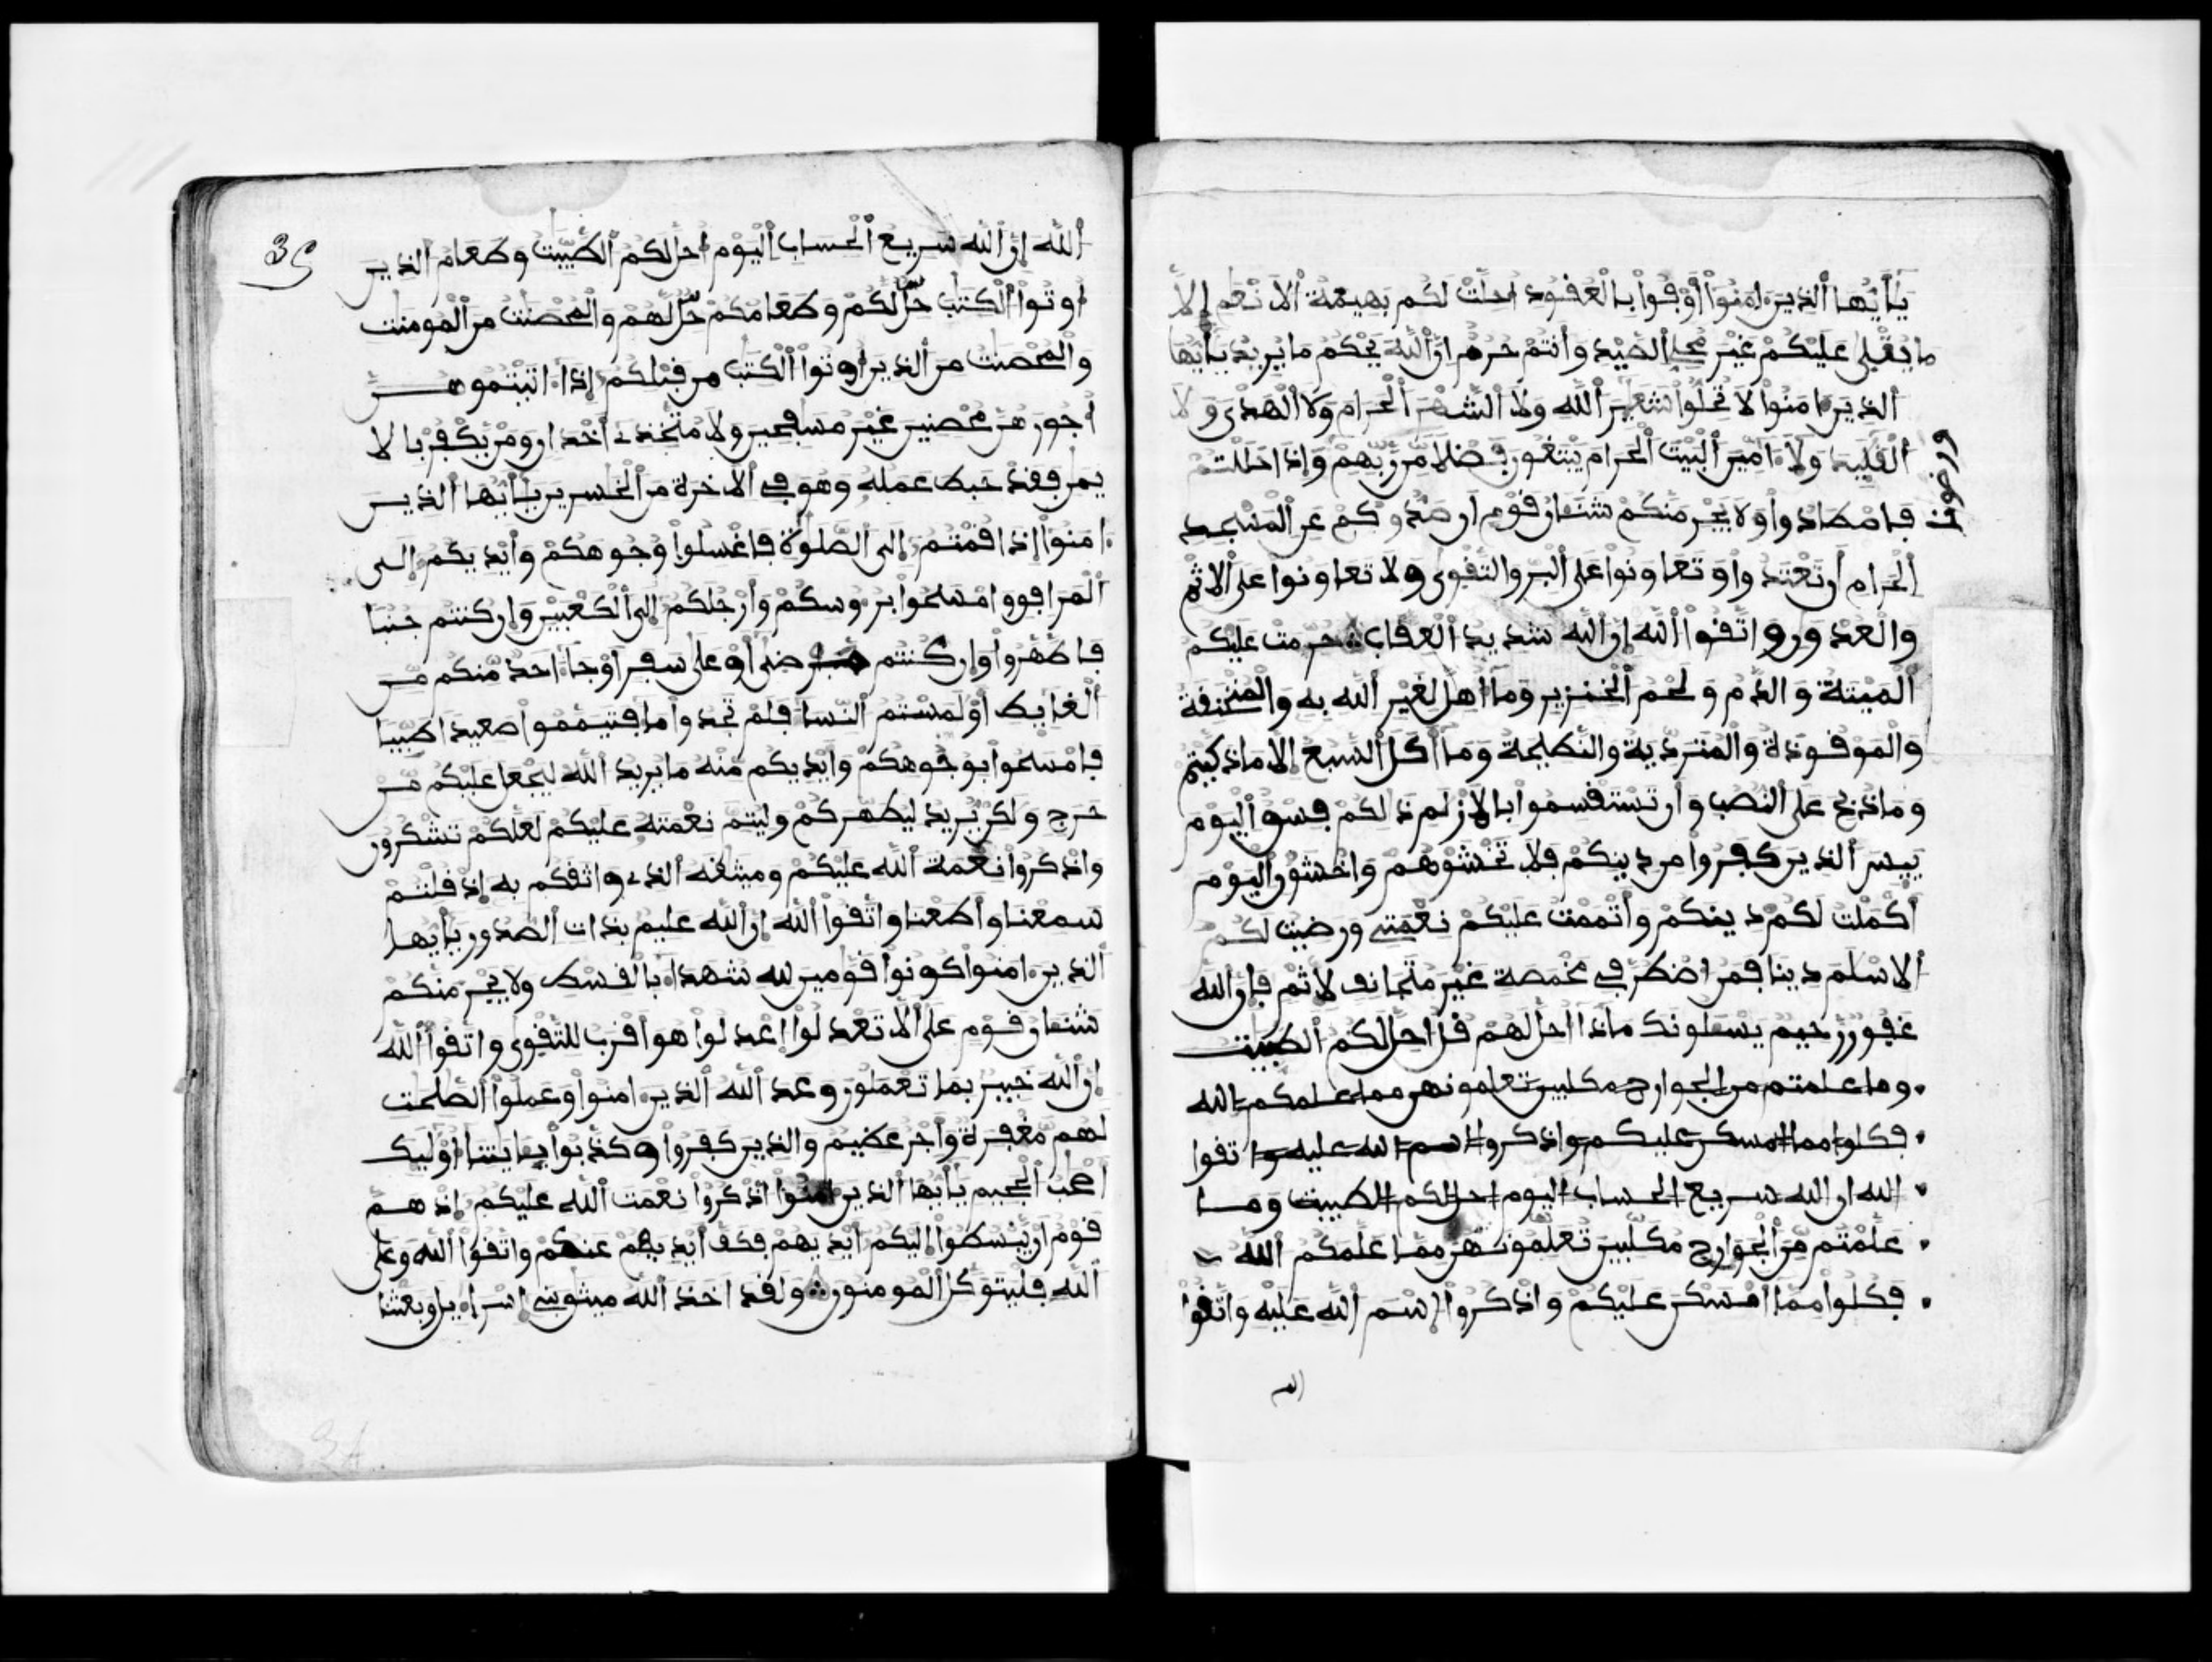 يٰأيها الذين ءامنوا أوفوا بالعقود احلت لكم بهيمة الانعم إلا
ما يتلى عليكم غير محلى الصيد وأنتم حرم ان الله يحكم ما يريد يأيها
الذين ءامنوا لا تحلوا شعير الله ولا الشهر الحرام ولا الهدى ولا
القليد ولا ءامين البيت الحرام يبتغون فضلا من ربهم
ورضونا
وإذا حللتم
فاصطادوا ولا يجرمنكم شنئان قوم ان صدوكم عن المسجد
الحرام أن تعتدوا وتعاونوا على البر والتقوى ولا تعاونوا على الاثم
والعدون واتقوا الله إن الله شديد العقاب حرمت عليكم
الميتة والدم ولحم الخنزير وما أهل لغير الله به والمنخنقة
والموقوذة والمتردية والنطيحة وما أكل السبع إلا ما ذكيتم
وما ذبح على النصب وأن تستقسموا بالازلم ذالكم فسق اليوم
ييس الذين كفروا من دينكم فلا تخشوهم واخشون اليوم
أكملت لكم دينكم وأتممت عليكم نعمتى ورضيت لكم
الاسلم دينا فمن اضطر فى مخمصة غير متجانف لاثم فإن الله
غفور رحيم يسئلونك ماذا احل لهم قل احل لكم الطيبت
وما علمتم من الجوارح مكلبين تعلمونهن مما علمكم الله
فكلوا مما امسكن عليكم واذكروا اسم الله عليه واتقوا
الله ان الله سريع الحساب اليوم احل لكم الطيبت وما
علمتم من الجوارح مكلبين تعلمونهن مما علمكم الله
فكلوا مما امسكن عليكم واذكروا اسم الله عليه واتقوا
الله
35
الله إن الله سريع الحساب اليوم احل لكم الطيبت وطعام الذين
اوتوا الكتب حل لكم وطعامكم حل لهم والمحصنت من المومنت
والمحصنت من الذين اوتوا الكتب من قبلكم إذا ءاتيتموهن
أجورهن محصنين غير مسفحين ولا متخذى أخدان ومن يكفر بالا
يمن فقد حبط عمله وهو فى الاخرة من الخسرين يأيها الذين
ءامنوا إذا قمتم إلى الصلوة فاغسلوا وجوهكم وأيديكم إلى
المرافق وامسحوا بروسكم وأرجلكم إلى الكعبين وإن كنتم جنبا
فاطهروا وإن كنتم مرضى أو على سفر او جاء احد منكم من
الغايط أو لمستم النسا فلم تجدوا ما فتيمموا صعيدا طيبا
فامسحوا بوجوهكم وأيديكم منه ما يريد الله ليجعل عليكم من
حرج ولكن يريد ليطهركم وليتم نعمته عليكم لعلكم تشكرون
واذكروا نعمة الله عليكم وميثقه الذى واثقكم به إذ قلتم
سمعنا وأطعنا واتقوا الله ان الله عليم بذات الصدور يأيها
الذين ءامنوا كونوا قومين لله شهدا بالقسط ولا يجرمنكم
شنئان قوم على ألا تعدلوا اعدلوا هو اقرب للتقوى واتقوا الله
ان الله خبير بما تعملون وعد الله الذين ءامنوا وعملوا الصلحت
لهم مغفرة وأجر عظيم والذين كفروا وكذبوا بئايتنا اوليك
اصحب الجحيم يأيها الذين ءامنوا اذكروا نعمت الله عليكم إذ هم
قوم ان يبسطوا إليكم أيديهم فكف أيديهم عنكم واتقوا الله وعلى
الله فليتوكل المومنون ولقد اخذ الله ميثق بنى إسراءيل وبعثنا
34